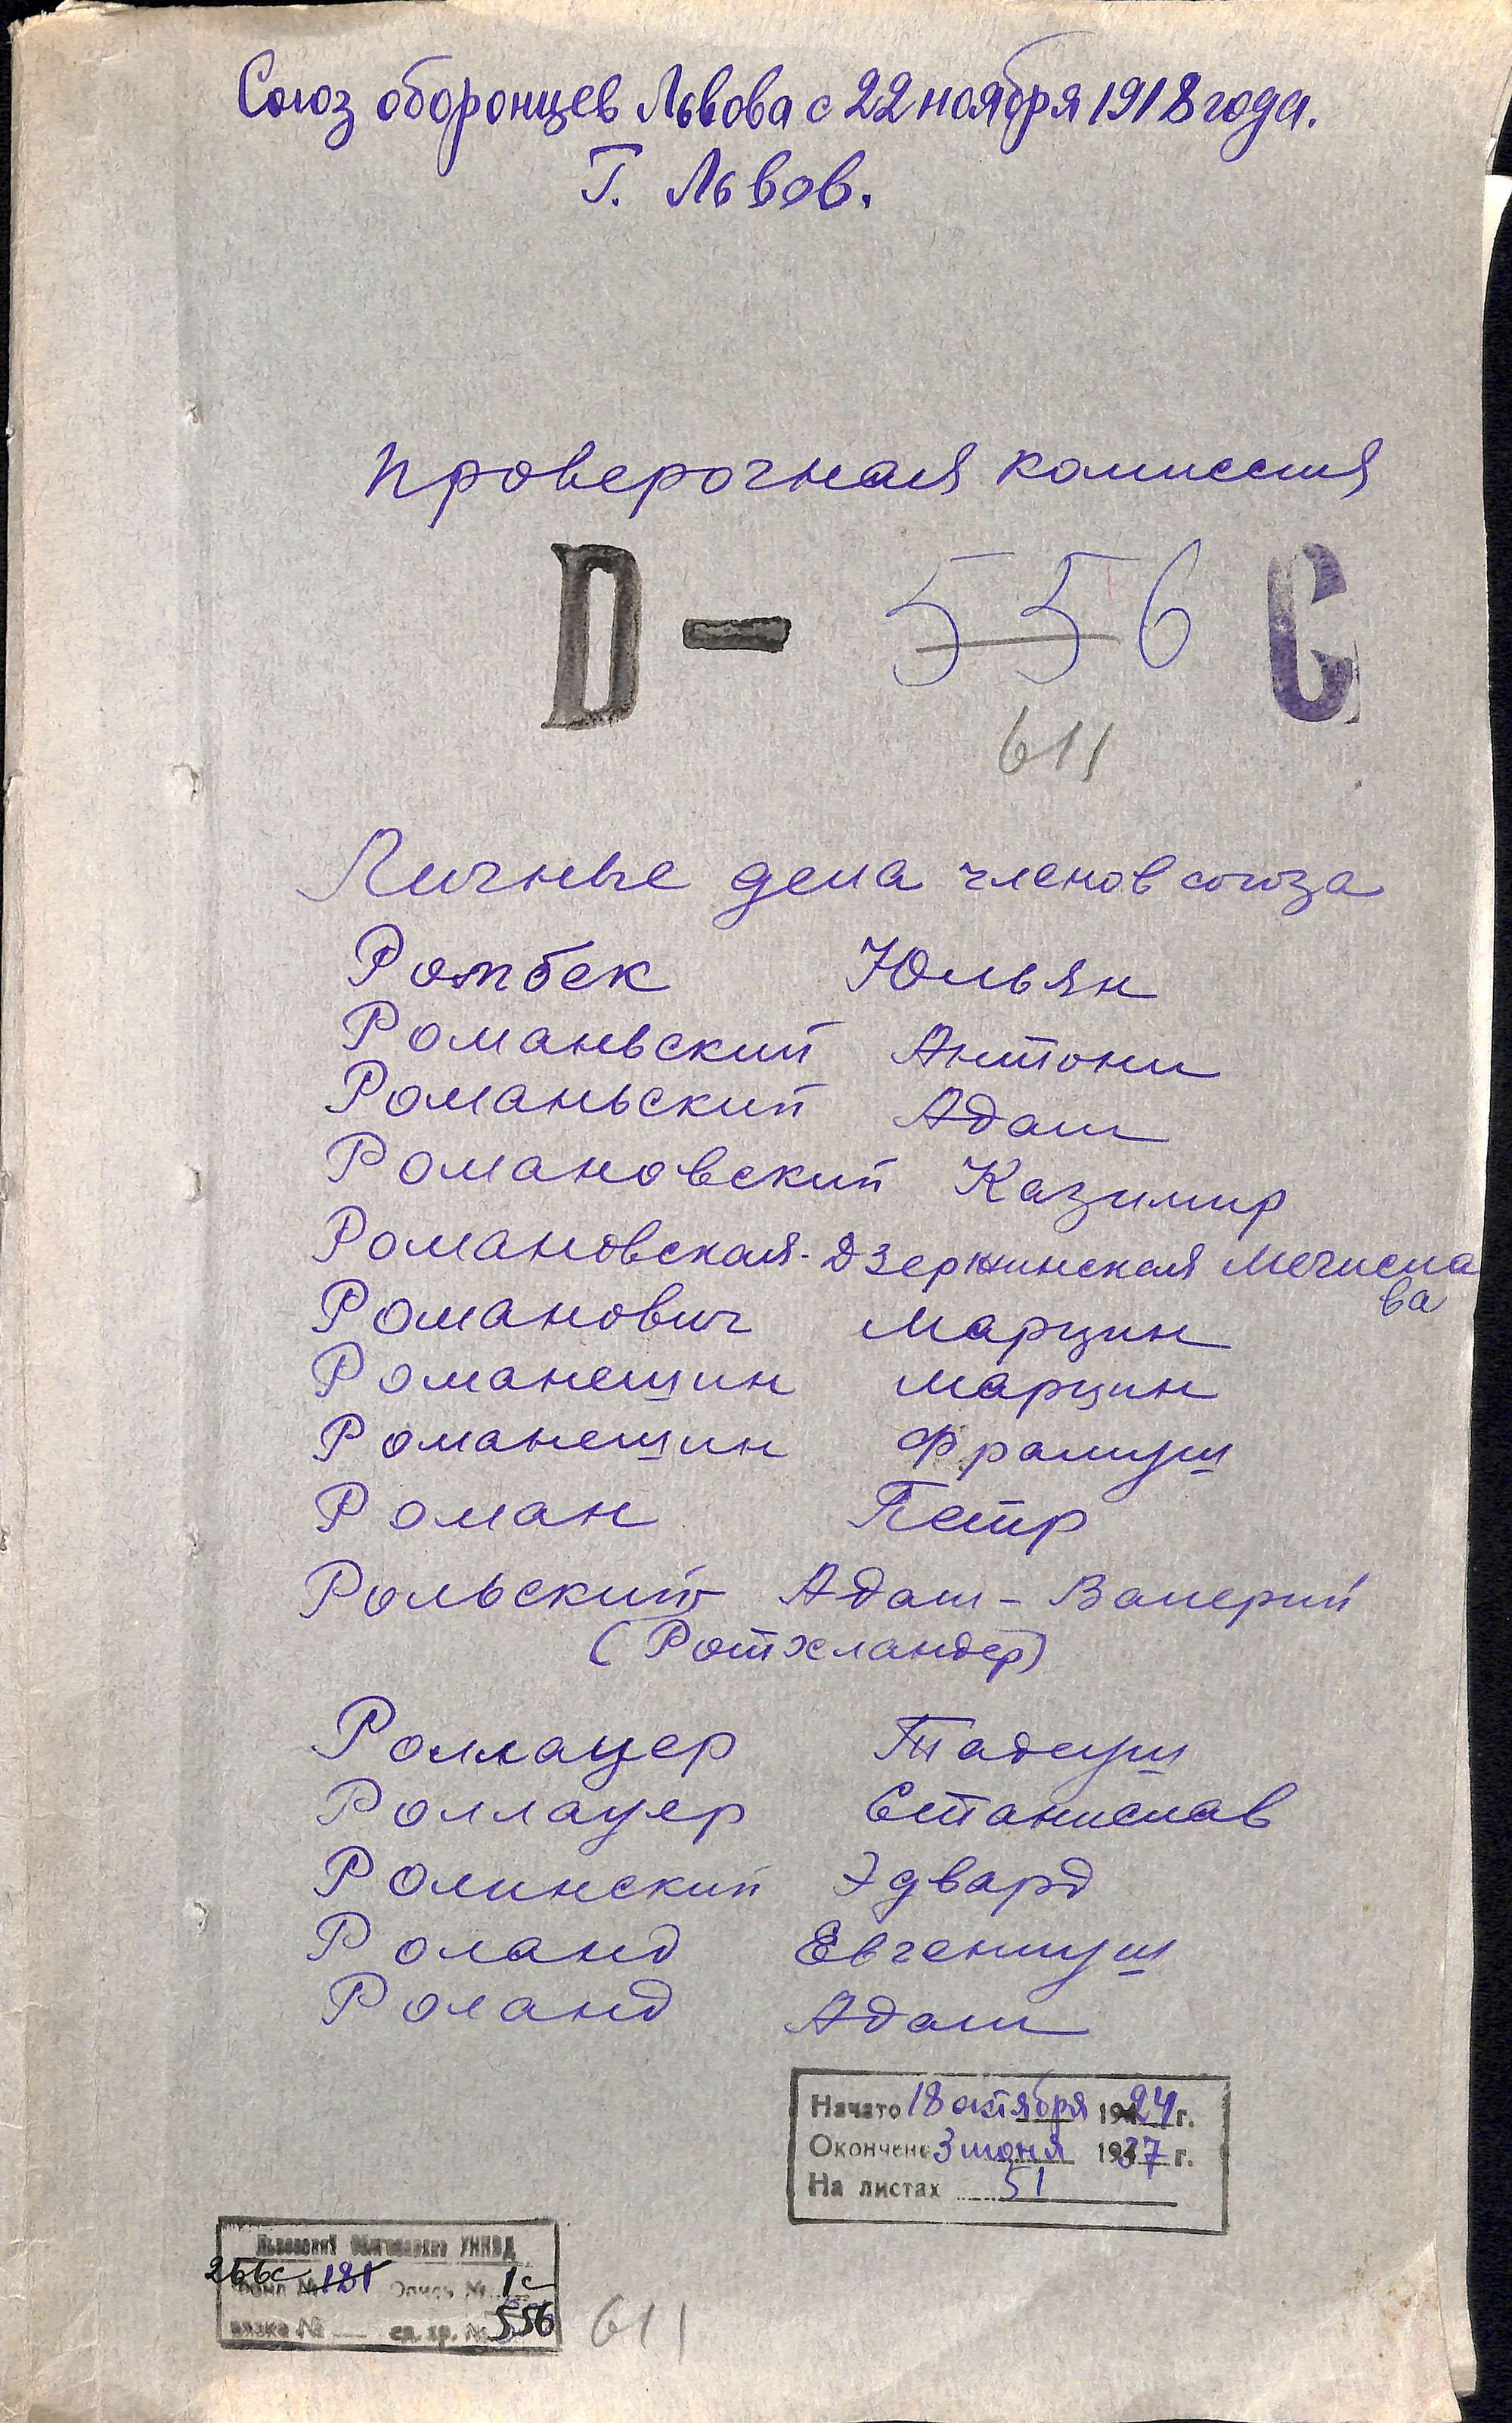 Союз оборонцев Львова с 22 ноября 1918 года.
Г. Львов.
проверочная комиссия
D — 556 С
611
Личные дела членов союза
Ромбек Юльян
Романьский Антони
Романьский Адам
Романовский Казимир
Романовская-Дзержинская Мечисла
ва
Романович Марцин
Романешин Марцин
Романешин Француш
Роман Петр
Рольский Адам - Валерий
(Ротхландер)
Роллауер Тадеуш
Роллауер Станислав
Ролинский Эдвард
Роланд Евгениуш
Роланд Адам
Начато 18 октября 1924 г.
Окончено 3 июня 1937 г.
На листах 51
Львовский Облгосархив УНКВД
256с Фонд № 181 Опись № 1с
вязка № — ед. хр. № 556
611